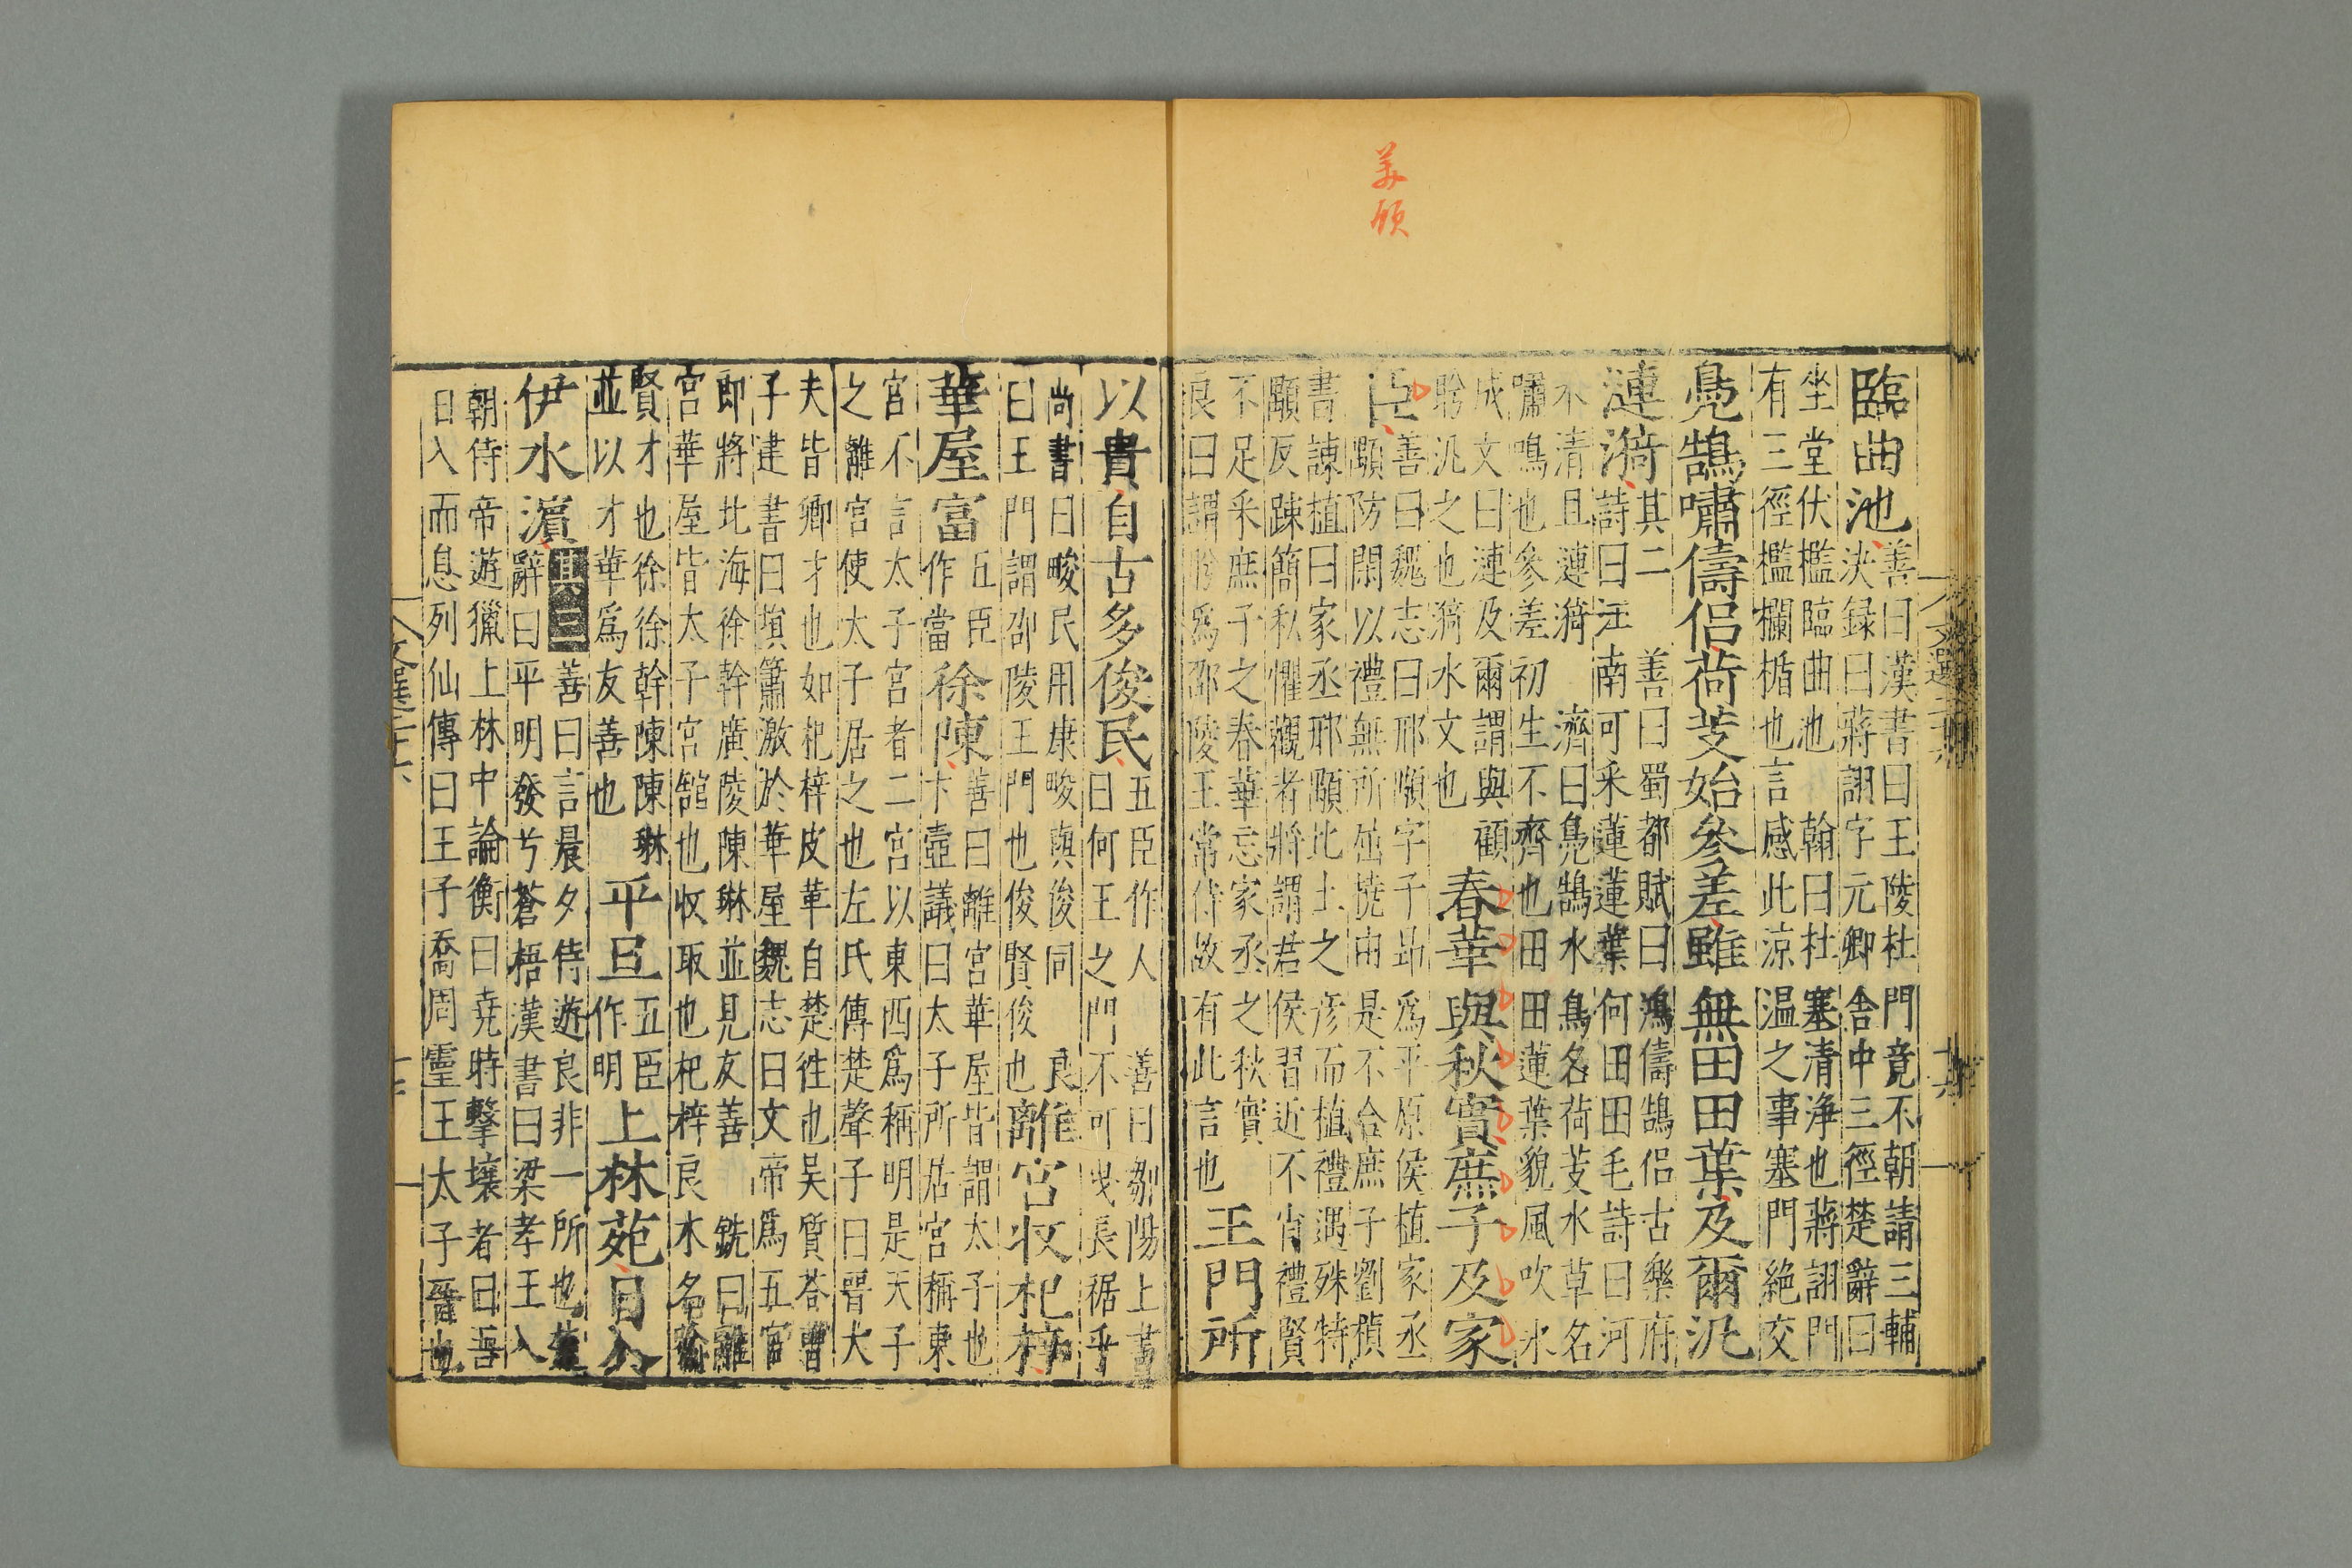 美頋
臨曲池善曰漢書曰王陵杜門竟不朝請三輔
決録曰蔣詡字元卿舍中三徑楚辭曰
坐堂伏檻臨曲池 翰曰杜塞清浄也蔣詡門
有三徑檻欄楯也言感此涼温之事塞門絶交
鳧鵠嘯儔侣荷芰始參差雖無田田葉及爾汎
漣漪其二 善曰蜀都賦曰鴻儔鵠侣古樂府
詩曰江南可采蓮蓮葉何田田毛詩曰河
水清且漣漪 濟曰鳧鵠水鳥名荷芰水草名
嘯鳴也參差初生不齊也田田蓮葉貌風吹水
成文曰漣及爾謂與顧
聆汎之也漪水文也 春華與秋實庶子及家
臣善曰魏志曰邢顒字子昻爲平原侯植家丞
顒防閑以禮無所屈撓由是不合庶子劉楨
書諫植曰家丞邢顒北土之彦而植禮遇殊特
顒反踈簡私懼觀者將謂君侯習近不肖禮賢
不足采庶子之春華忘家丞之秋實
良曰謂 爲邵陵王常侍故有此言也 王門所
以貴自古多俊民五臣作人 善曰鄒陽上書
曰何王之門不可曳長裾乎
尚書曰畯民用康畯與俊同 良
曰王門謂邵陵王門也俊賢俊也離宮收杞梓
華屋富五臣作當徐陳善曰離宮華屋皆謂太子也
卞壼議曰太子所居宮稱東
宮不言太子宮者二宮以東西爲稱明是天子
之離宮使太子居之也左氏傳楚聲子曰晉大
夫皆卿才也如杞梓皮革自楚徃也吴質荅曹
子建書曰塤簫激於華屋魏志曰文帝爲五官
郎將北海徐幹廣陵陳琳並見友善 銑曰離
宮華屋皆太子宮舘也收取也杞梓良木名喻
賢才也徐徐幹陳陳琳
並以才華爲友善也 平旦五臣作明上林苑日入
伊水濵其三 善曰言晨夕侍遊良非一所也楚
辭曰平明發兮蒼梧漢書曰梁孝王入
朝侍帝遊獵上林中論衡曰尭時擊壤者曰吾
日入而息列仙傳曰王子喬周靈王太子晉也